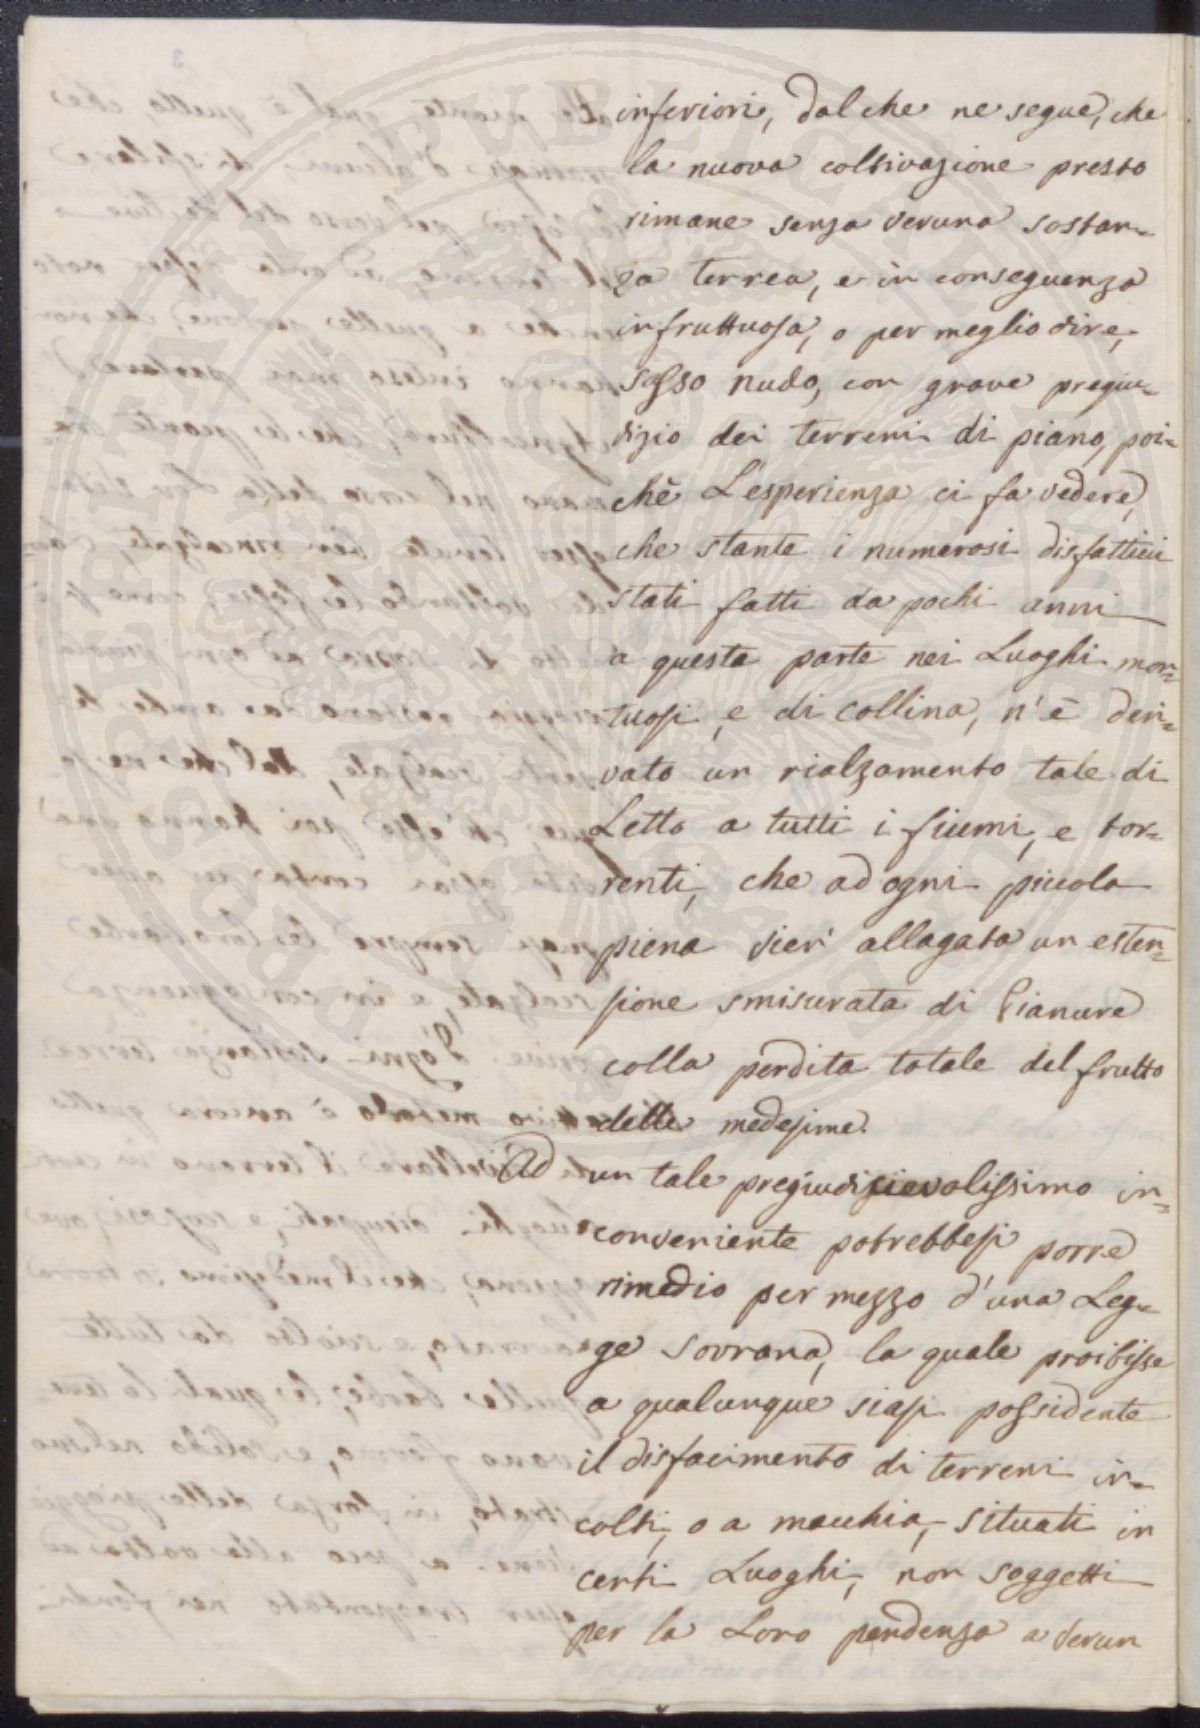 inferiori, dal che ne segue, che
la nuova coltivazione presto
rimane senza veruna sostan=
za terrea, e in conseguenza
infruttuosa, o per meglio dire,
sasso nudo, con grave pregiu=
dizio dei terreni di piano, poi=
chè L'esperienza ci fa vedere,
che stante i numerosi disfatticci
stati fatti da pochi anni
a questa parte nei Luoghi mon=
tuosi, e di collina, n'è deri=
vato un rialzamento tale di
Letto a tutti i fiumi, e tor=
renti, che ad ogni piccola
piena vien' allagata un esten=
sione smisurata di Pianure
colla perdita totale del frutto
delle medesime.
Ad un tale pregiudizievolissimo in=
conveniente potrebbesi porre
rimedio per mezzo d'una Leg=
ge sovrana, la quale proibisse
a qualunque siasi possidente
il disfacimento di terreni in=
colti, o a macchia, situati in
certi Luoghi, non soggetti
per la Loro pendenza a verun